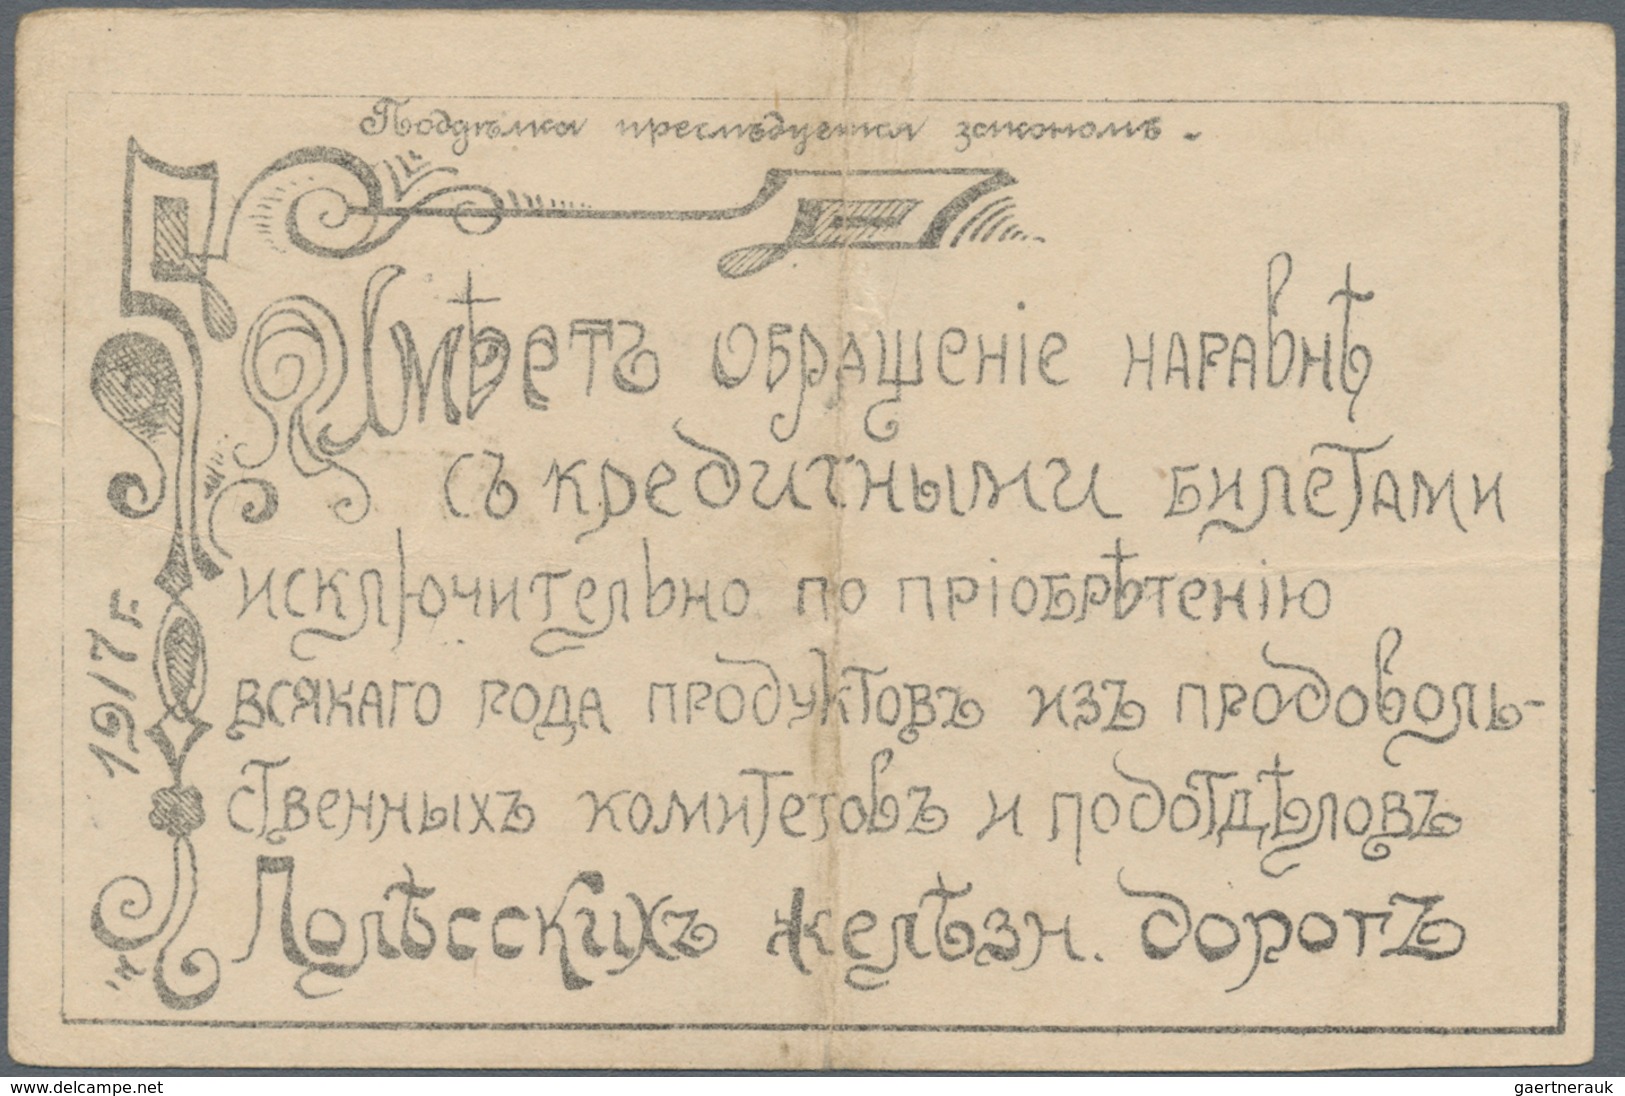 Поддѣлка преслѣдуется закономъ.
Имѣетъ обращеніе наравнѣ
съ кредитными билетами
исключительно по пріобрѣтенію
всякаго рода продуктовъ изъ продоволь-
ственныхъ комитетовъ и подотдѣловъ
Полѣсскихъ желѣзн. дорогъ
1917 г.
www.delcampe.net
gaertnerauk